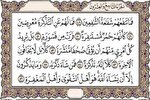 فَمَا تَنْفَعُهُمْ شَفَاعَةُ الشَّافِعِينَ فَمَا لَهُمْ عَنِ التَّذْكِرَةِ مُعْرِضِينَ
كَأَنَّهُمْ حُمُرٌ مُسْتَنْفِرَةٌ فَرَّتْ مِنْ قَسْوَرَةٍ بَلْ يُرِيدُ كُلُّ
امْرِئٍ مِنْهُمْ أَنْ يُؤْتَى صُحُفًا مُنَشَّرَةً كَلَّا بَلْ لَا يَخَافُونَ
الْآخِرَةَ كَلَّا إِنَّهُ تَذْكِرَةٌ فَمَنْ شَاءَ ذَكَرَهُ وَمَا يَذْكُرُونَ
إِلَّا أَنْ يَشَاءَ اللَّهُ هُوَ أَهْلُ التَّقْوَى وَأَهْلُ الْمَغْفِرَةِ